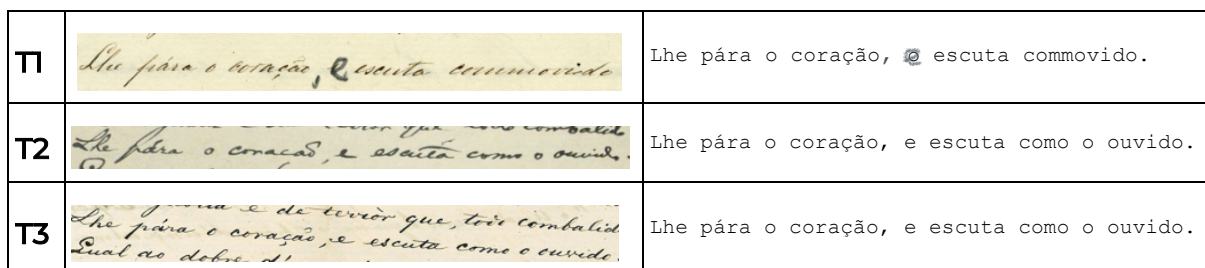 T1
Lhe pára o coração, e escuta commovido
Lhe pára o coração, e escuta commovido.
T2
que tôis combalid
Lhe pára o coração, e escuta como o ouvido.
Lhe pára o coração, e escuta como o ouvido.
T3
e de terrôr que, tois combalid
Lhe pára o coração, e escuta como o ouvido.
Qual ao dobre d'
Lhe pára o coração, e escuta como o ouvido.